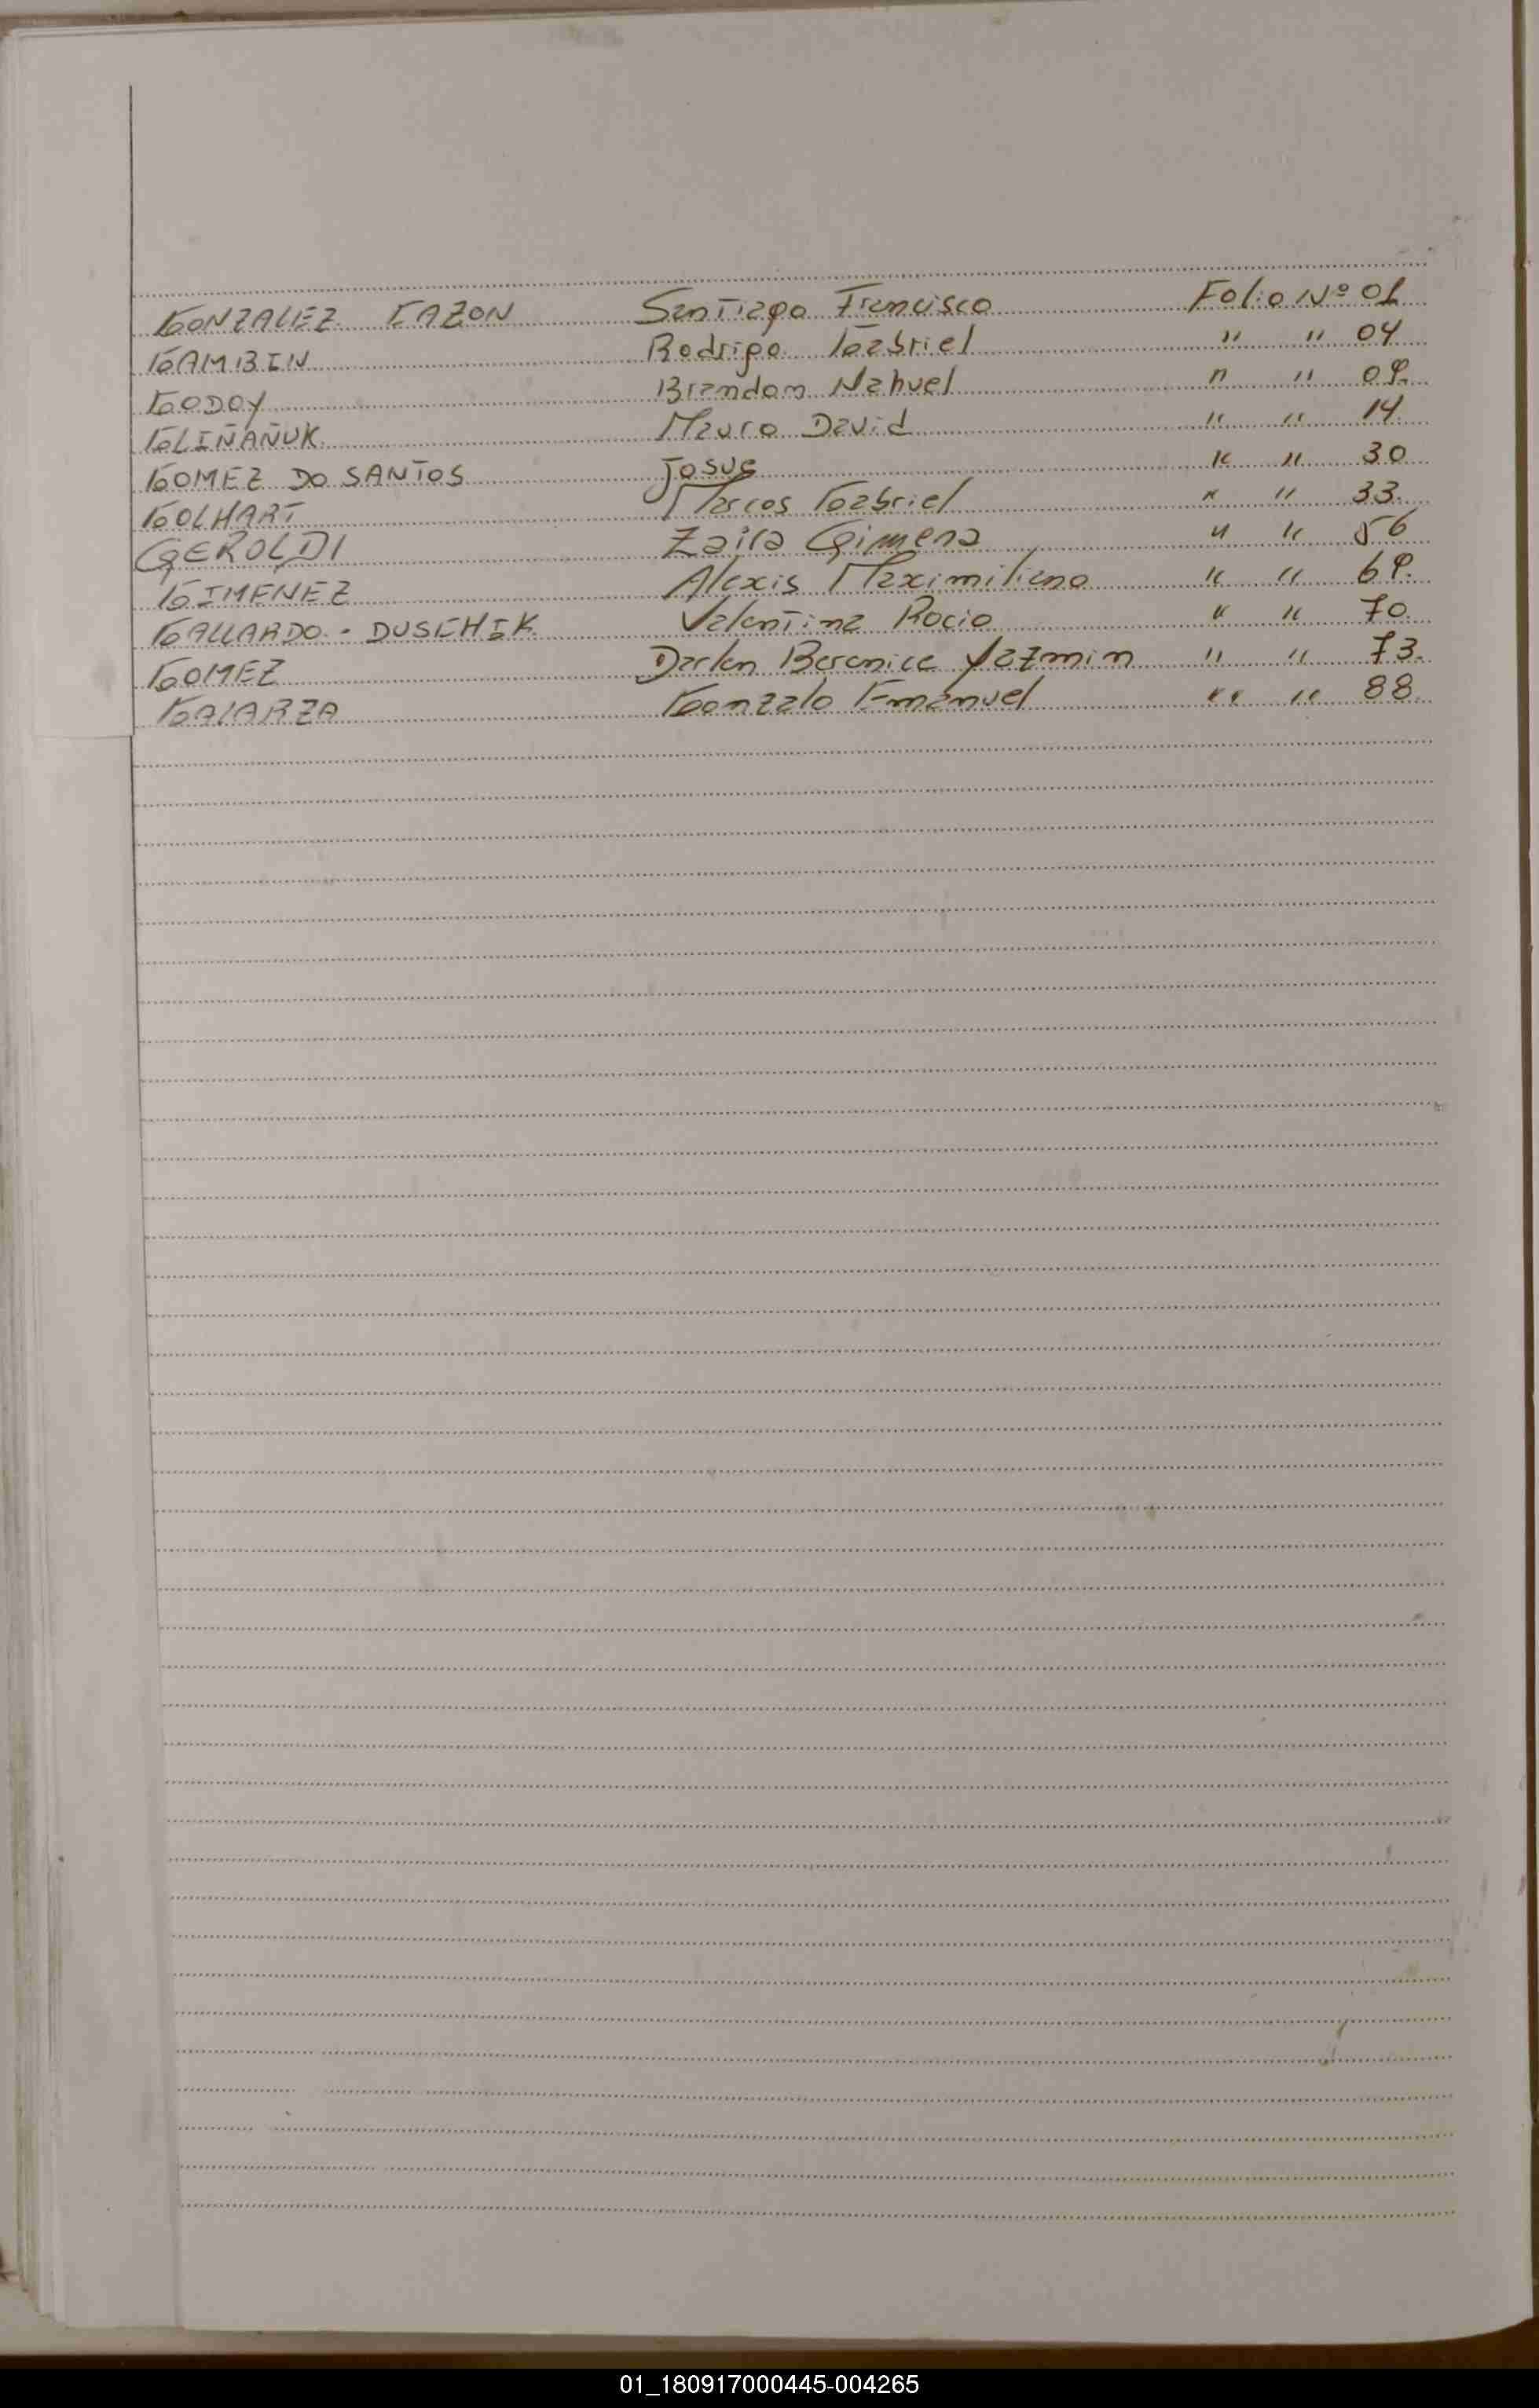 GONZALEZ CAZON Santiago Francisco Folio Nº 01
GAMBIN Rodrigo Gabriel " " 04
GODOY Brandon Nahuel " " 09.
GLIÑAÑUK Mauro David " " 14.
GOMEZ DO SANTOS Josue " " 30
GOLHART Marcos Gabriel " " 33.
GEROLDI Zaira Gimena " " 56
GIMENEZ Alexis Maximiliano " " 69.
GALLARDO - DUSCHIK Valentina Rocio " " 70.
GOMEZ Darlen Berenice Yazmin " " 73.
GALARZA Gonzalo Emanuel " " 88.
01_180917000445-004265